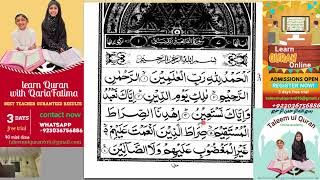 learn Quran
with Qaria Fatima
BEST TEACHER GURANTEES RESULTS
3 DAYS
free trial
contact now
WHATSAPP
+923036756886
بسم الله الرحمن الرحيم
اَلْحَمْدُ لِلّٰهِ رَبِّ الْعٰلَمِيْنَ الرَّحْمٰنِ
الرَّحِيْمِ مٰلِكِ يَوْمِ الدِّيْنِ اِيَّاكَ نَعْبُدُ
وَاِيَّاكَ نَسْتَعِيْنُ اِهْدِنَا الصِّرَاطَ
الْمُسْتَقِيْمَ صِرَاطَ الَّذِيْنَ اَنْعَمْتَ عَلَيْهِمْ
غَيْرِ الْمَغْضُوْبِ عَلَيْهِمْ وَلَا الضَّآلِّيْنَ
Learn
QURAN
Online
ADMISSIONS OPEN
REGISTER NOW!
3 days free trial
Taleem ul Quran